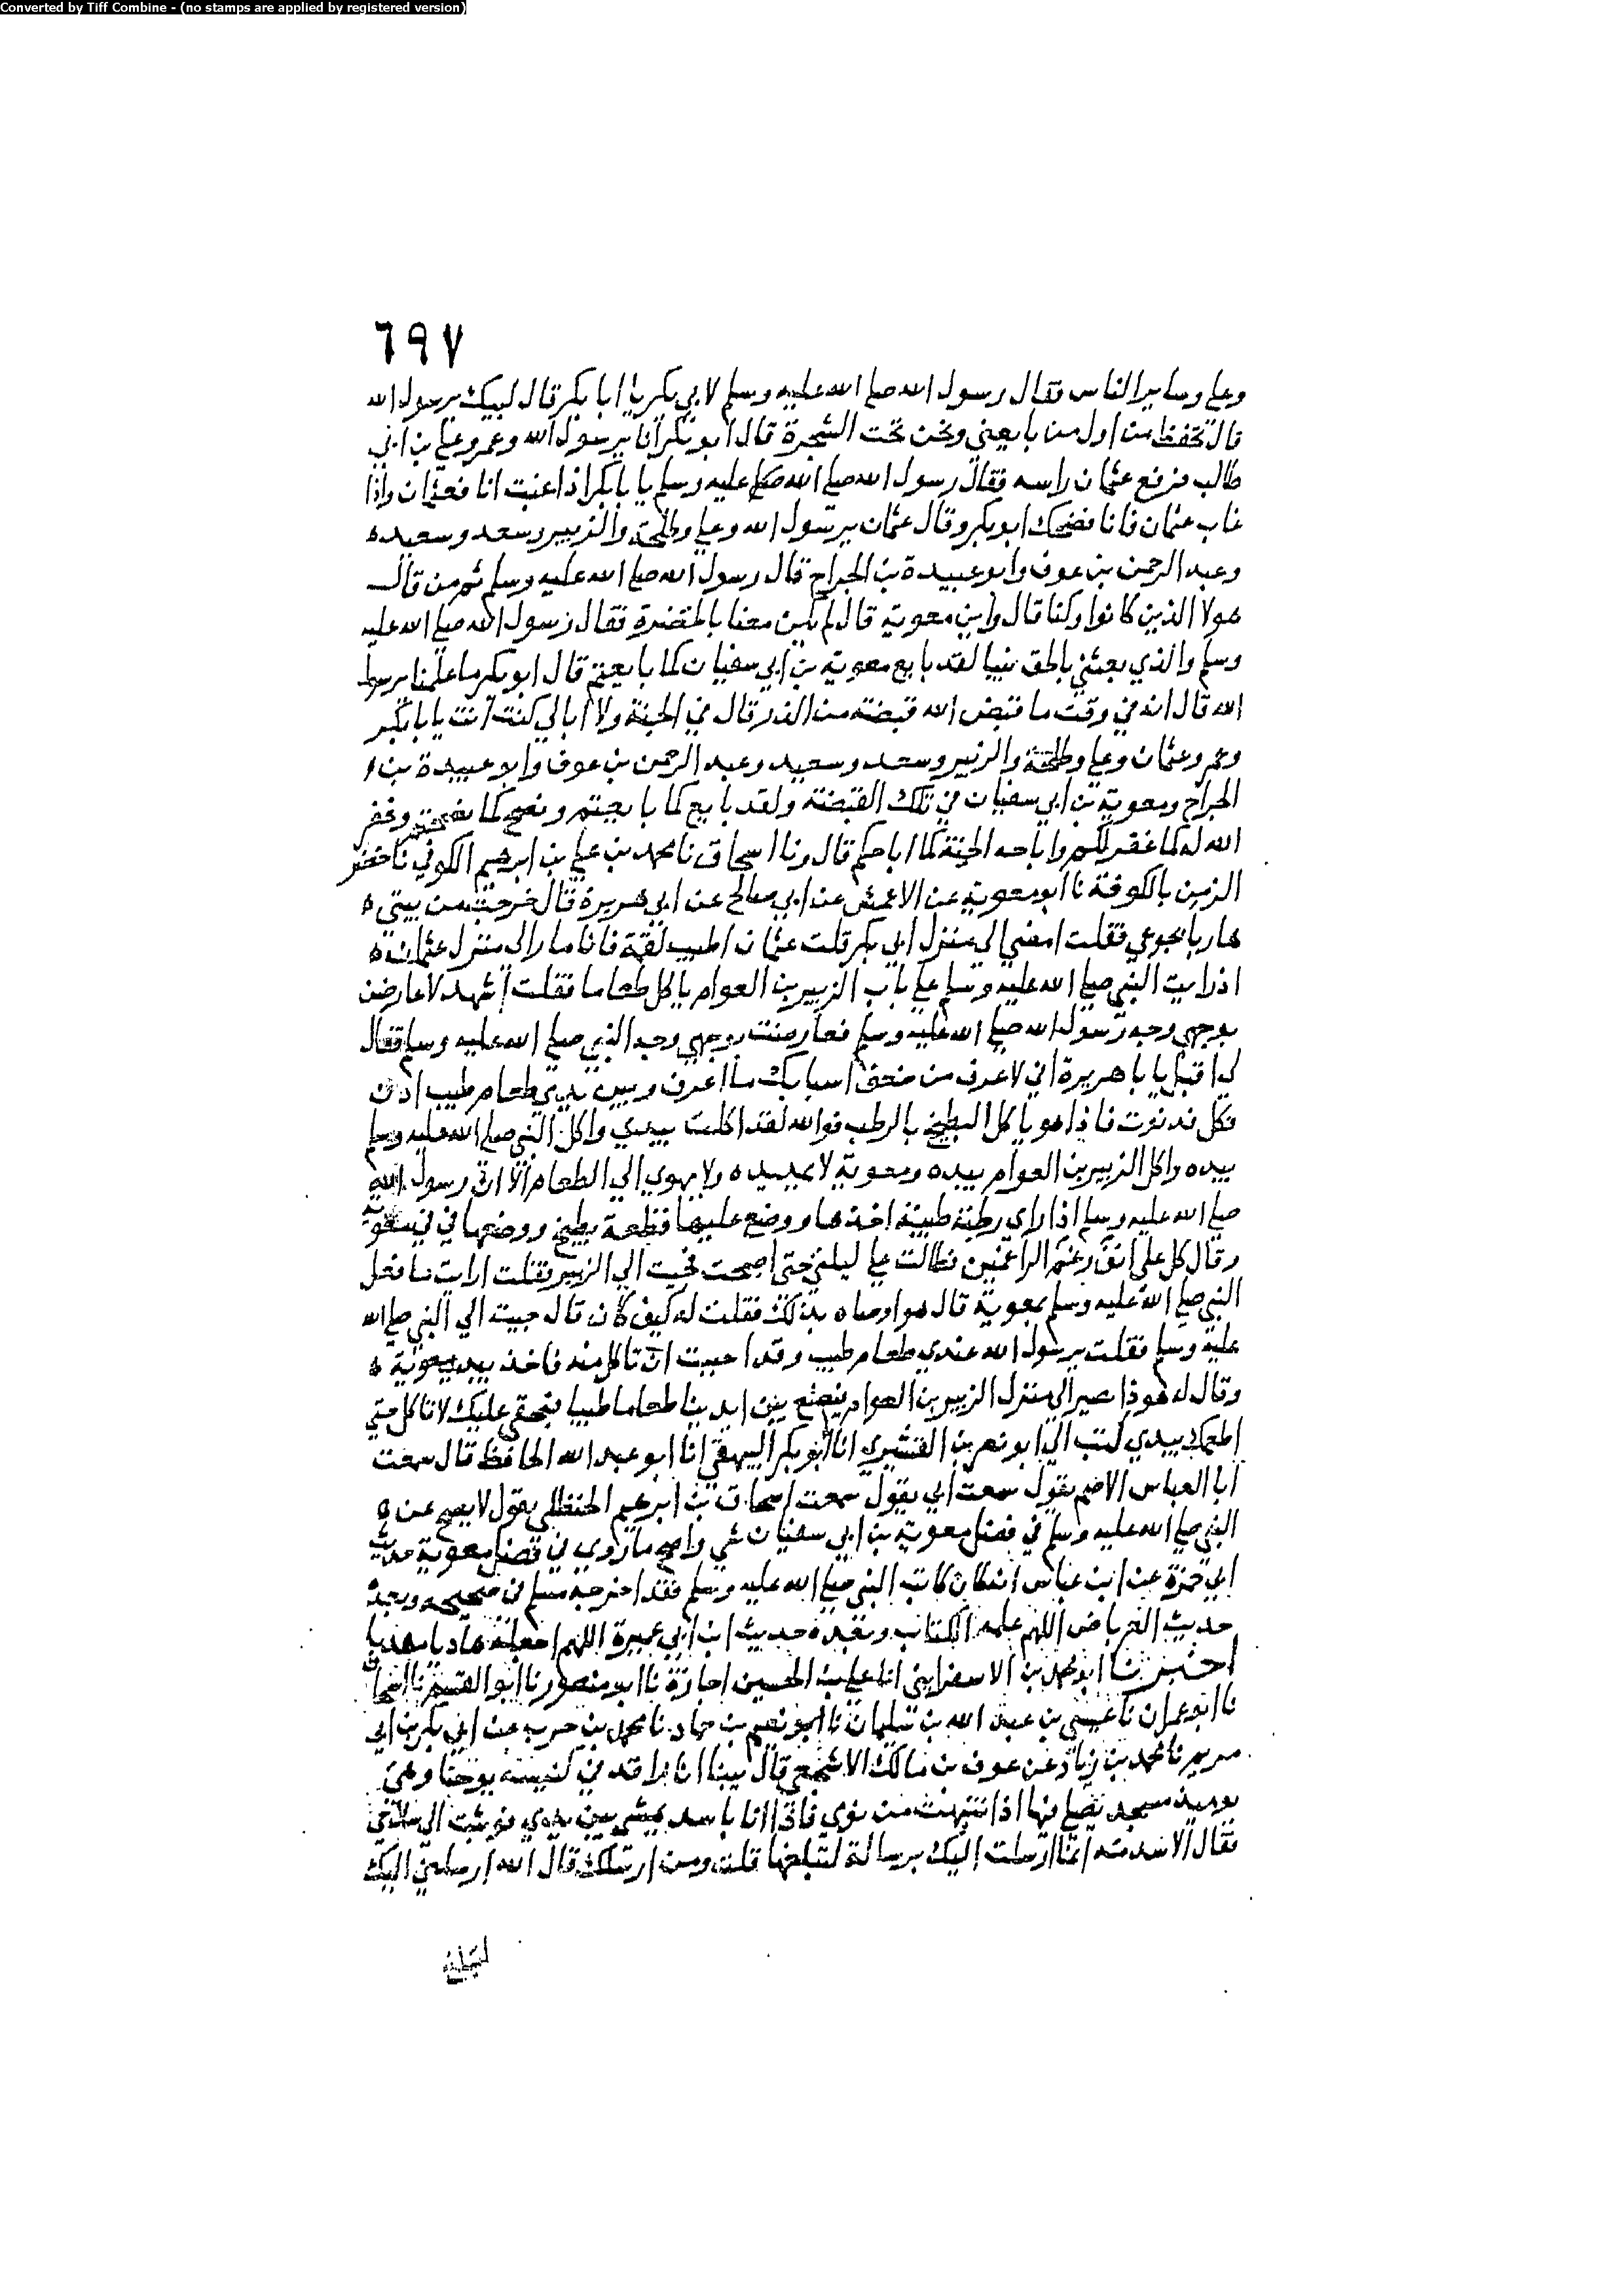 Converted by Tiff Combine - (no stamps are applied by registered version)
٦٩٧
وعلي وساير الناس فقال رسول الله صلي الله عليه وسلم لابي بكر يا ابا بكر قال لبيك يرسول الله
قال تحفظ من اول من بايعني ونحن تحت الشجرة قال ابو بكر انا يرسول الله وعمر وعلي بن ابي
طالب فرفع عثمان راسه فقال رسول الله صلي الله عليه وسلم يا بابكر اذا غبت انا فعثمان واذا
غاب عثمان فانا فضحك ابو بكر وقال عثمان يرسول الله وعلي وطلحة والزبير وسعد وسعيد
وعبد الرحمن بن عوف وابو عبيدة بن الجراح قال رسول الله صلي الله عليه وسلم ثم من قال
هولا الذين كانوا وكنا قال واين معوية قال لم يكن معنا بالحضرة فقال رسول الله صلي الله عليه
وسلم والذي بعثني بالحق نبيا لقد بايع معوية بن ابي سفيان كما بايعتم قال ابو بكر ما علمنا يرسول
الله قال انه في وقت ما قبض الله قبضة من الذر قال في الجنة ولا ابالي كنت انت يا بابكر
وعمر وعثمان وعلي وطلحة والزبير وسعد وسعيد وعبد الرحمن بن عوف وابو عبيدة بن
الجراح ومعوية بن ابي سفيان في تلك القبضة ولقد بايع كما بايعتم ونصح كما نصحتم وغفر
الله له كما غفر لكم واباحه الجنة كما اباحكم قال ونا اسحاق نا محمد بن علي بن ابرهيم الكوفي نا
بالكوفة نا ابو معوية عن الاعمش عن ابي صالح عن ابي هريرة قال خرجت من بيتي
هاربا بجوعي فقلت امضي الي منزل ابي بكر قلت عثمان اطيب لقمة فانا مار الي منزل عثمان
اذ رايت النبي صلي الله عليه وسلم علي باب الزبير بن العوام ياكل طعاما فقلت اشهد لاعارضن
بوجهي وجه رسول الله صلي الله عليه وسلم فعارضت بوجهي وجه النبي صلي الله عليه وسلم فقال
لي اقبل يا با هريرة اني لاعرف من اسبابك ما اعرف وبين يدي طعام طيب ادن
فكل فدنوت فاذا هو ياكل البطيخ بالرطب فوالله لقد اكلت بيدي واكل النبي صلي الله عليه وسلم
بيده واكل الزبير بن العوام بيده ومعوية لا يمد يده ولا يهوي الي الطعام الا ان رسول الله
صلي الله عليه وسلم اذا راي رطبة طيبة اخذها ووضع عليها قطعة بطيخ ووضعها في في معوية
وقال كل علي انف رغم الراغمين فطالت علي ليلتي حتى اصبحت فجيت الي الزبير فقلت ارايت ما فعل
النبي صلي الله عليه وسلم بمعوية قال هو اوصاه بذلك فقلت له كيف كان قال جيت الي النبي صلي الله
عليه وسلم فقلت يرسول الله عندي طعام طيب وقد احببت ان تاكل منه فاخذ بيد معوية
وقال له هوذا نصير الي منزل الزبير بن العوام يضع بين ايدينا طعاما طيبا فبحقي عليك لا تاكل حتى
اطعمك بيدي كتب الي ابو نصر بن القشيري انا ابو بكر البيهقي انا ابو عبد الله الحافظ قال سمعت
ابا العباس الاصم يقول سمعت ابي يقول سمعت اسحاق بن ابرهيم الحنظلي يقول لا يصح عن
النبي صلي الله عليه وسلم في فضل معوية بن ابي سفيان شي واصح ما روي في فضل معوية حديث
ابي حمزة عن ابن عباس انه كان كاتب النبي صلي الله عليه وسلم فقد اخرجه مسلم في صحيحه وبعده
حديث العرباض اللهم علمه الكتاب وبعده حديث ابن ابي عميرة اللهم اجعله هاديا مهديا
اخبرنا ابو محمد بن الاسفرايني انا علي بن الحسين اجازة نا ابو منصور نا ابو القسم نا اسحاق
نا ابو عمران نا عيسى بن عبد الله بن سليمان نا ابو نعيم بن حماد نا محمد بن حرب عن ابي بكر بن ابي
مريم نا محمد بن زياد عن عوف بن مالك الاشجعي قال بينا انا راقد في كنيسة يوحنا وهي
يوميذ مسجد يصلي فيها اذ انتبهت من نومي فاذا انا باسد يمشي بين يدي فوثبت الي سلاحي
فقال الاسد مه انما ارسلت اليك برسالة لتبلغها قلت ومن ارسلك قال الله ارسلني اليك